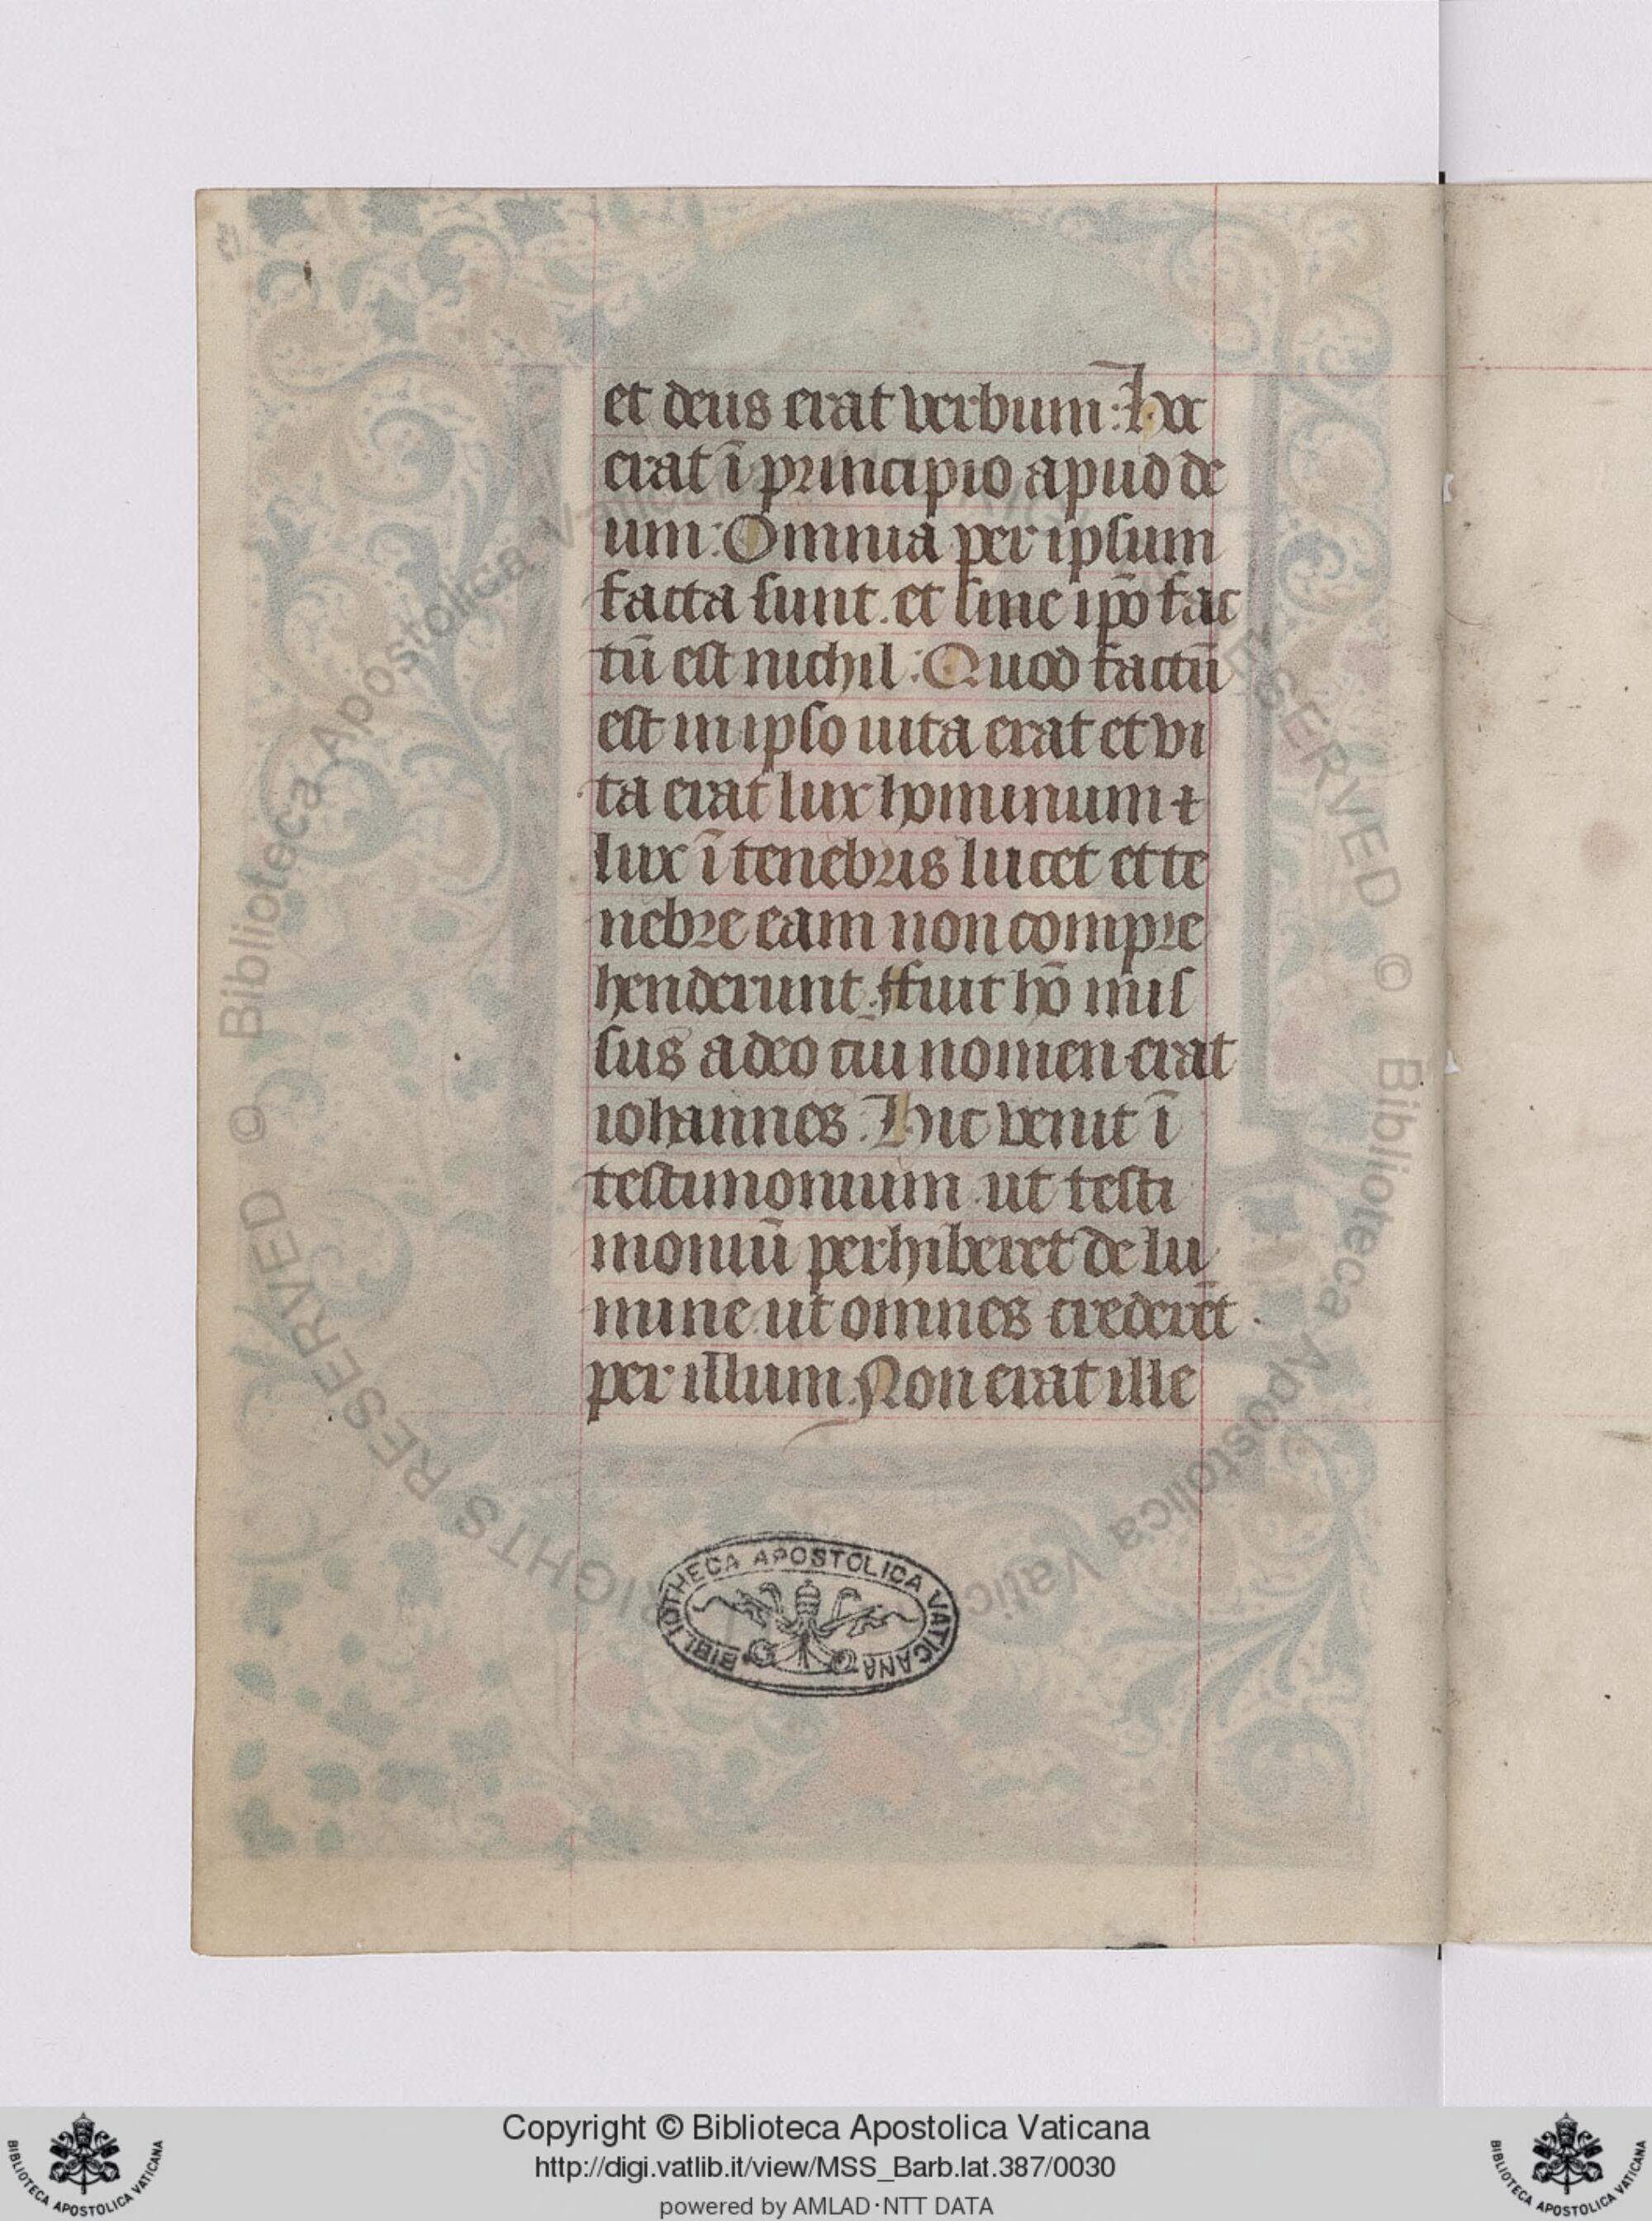 et deus erat verbum: hoc
erat ī principio apud de
um: Omnia per ipsum
facta sunt. et sine ip̄o fac
tū est nichil: Quod factū
est in ipso uita erat et vi
ta erat lux hominum ⁊
lux ī tenebris lucet et te
nebre eam non compre
henderunt. ffuit hō mis
sus a deo cui nomen erat
iohannes. Hic venit ī
testimonium ut testi
moniū perhiberet de lu
mine ut omnes crederēt
per illum. Non erat ille
BIBLIOTHECA APOSTOLICA VATICANA
© Biblioteca Apostolica Vaticana
RIGHTS RESERVED © Biblioteca Apostolica Vaticana
RESERVED © Biblioteca Apostolica Vatic
Copyright © Biblioteca Apostolica Vaticana
http://digi.vatlib.it/view/MSS_Barb.lat.387/0030
powered by AMLAD·NTT DATA
BIBLIOTECA APOSTOLICA VATICANA
BIBLIOTECA APOSTOLICA VATICANA